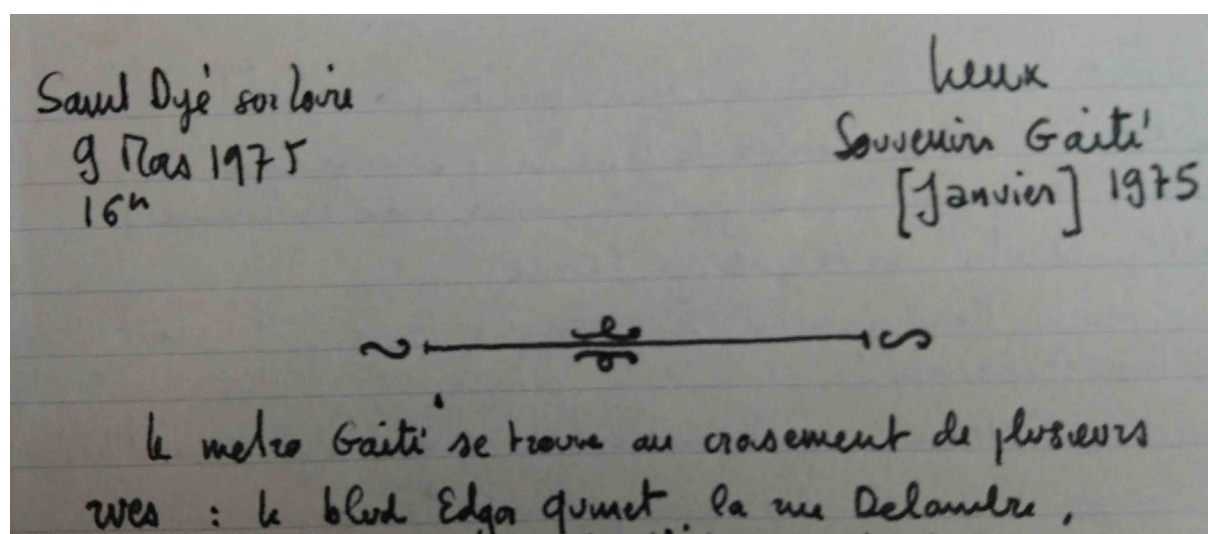 Saint Dyé sur Loire
9 Mars 1975
16h
Lieux
Souvenirs Gaité
[Janvier] 1975
le metro Gaité se trouve au croisement de plusieurs
rues : le blvd Edgar Quinet, la rue Delambre,